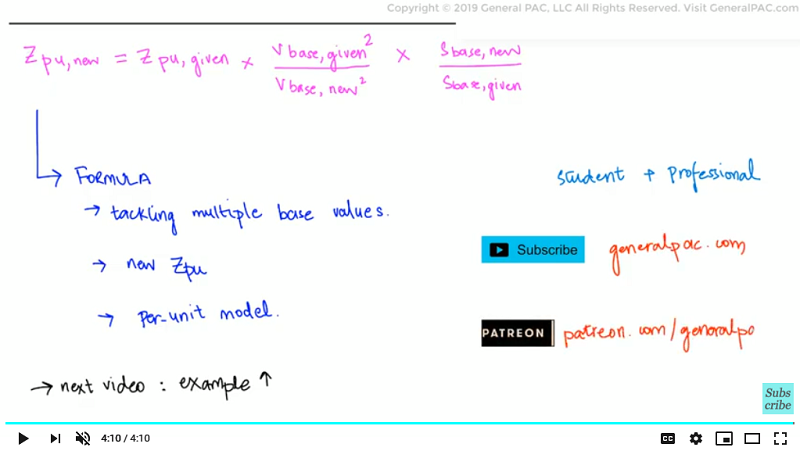 Copyright © 2019 General PAC, LLC All Rights Reserved. Visit GeneralPAC.com
Zpu,new = Zpu,given × Vbase,given² / Vbase,new² × Sbase,new / Sbase,given
→ FORMULA
→ tackling multiple base values.
→ new Zpu
→ Per-unit model.
→ next video : example ↑
student + Professional
Subscribe generalpac.com
PATREON patreon.com/generalpa
Subs
cribe
4:10 / 4:10
CC